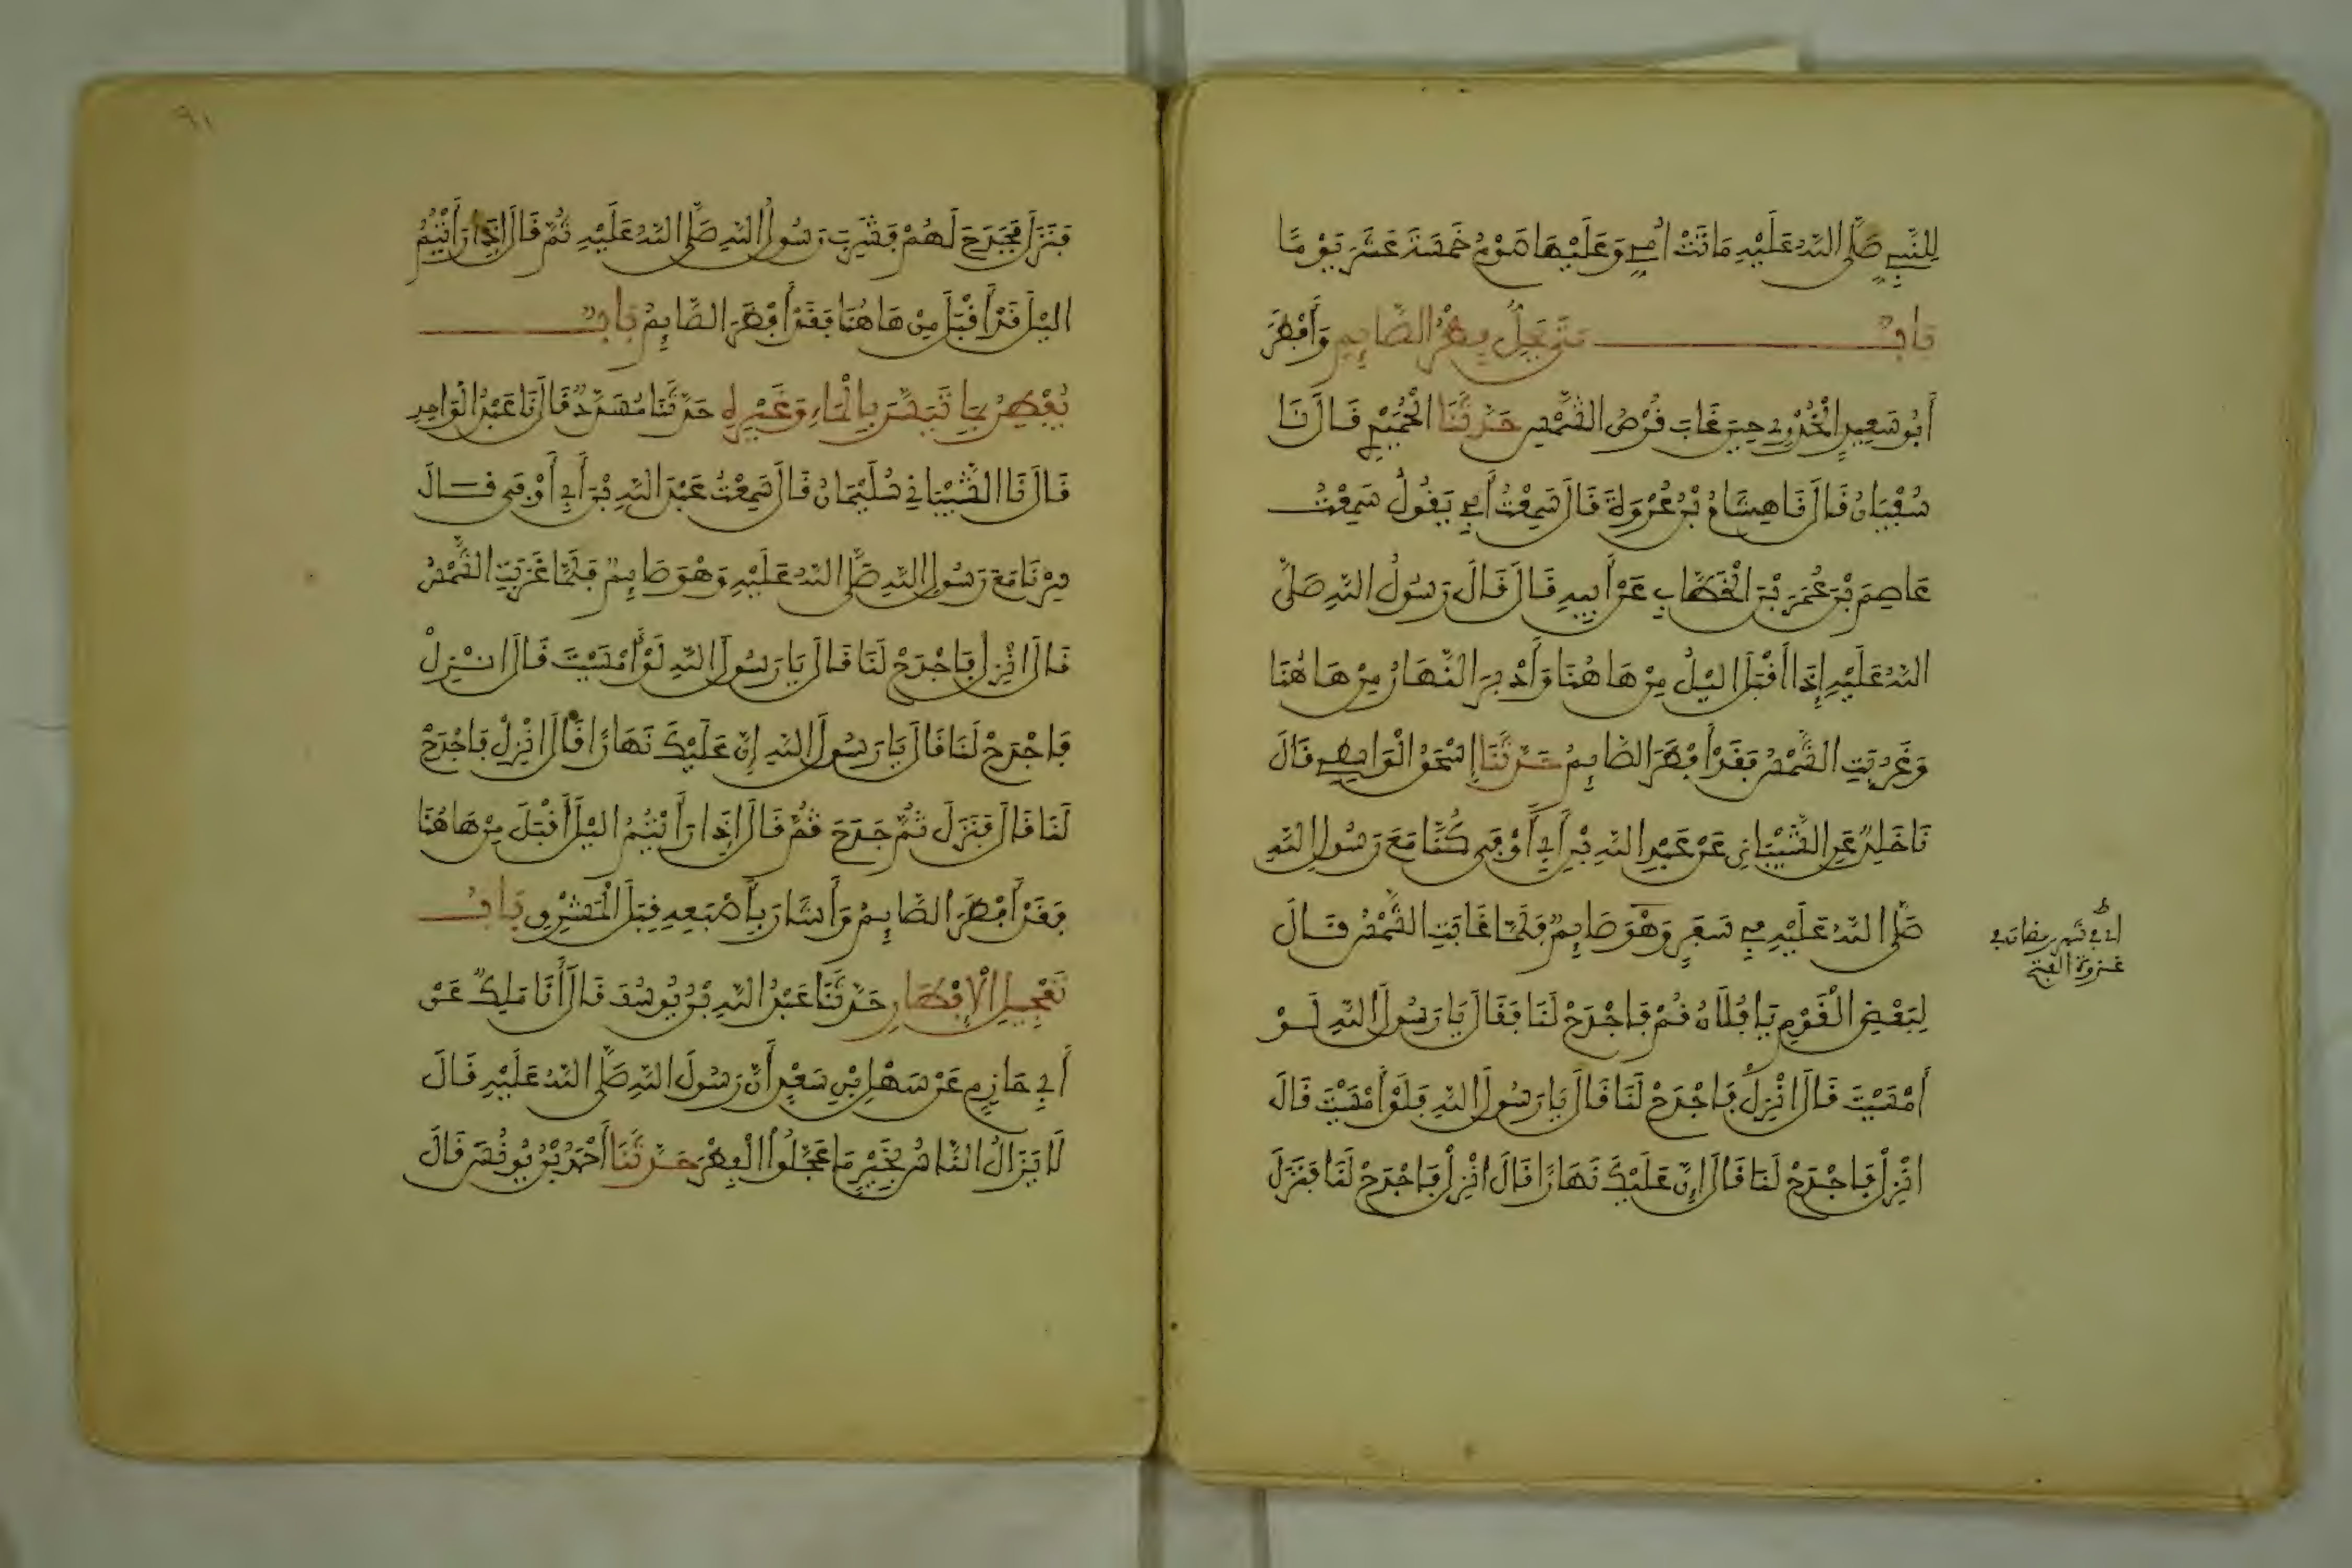 لِلنَّبِيِّ صَلَّى اللَّهُ عَلَيْهِ مَاتَتْ أُمِّي وَعَلَيْهَا صَوْمُ خَمْسَةَ عَشَرَ يَوْمًا
بَابٌ مَتَى يَحِلُّ فِطْرُ الصَّايِمِ وَأَفْطَرَ
أَبُو سَعِيدٍ الْخُدْرِي حِينَ غَابَ قُرْصُ الشَّمْسِ حَدَّثَنَا الْحُمَيْدِي قَالَ نَا
سُفْيَانُ قَالَ نَا هِشَامُ بْنُ عُرْوَةَ قَالَ سَمِعْتُ أَبِي يَقُولُ سَمِعْتُ
عَاصِمَ بْنَ عُمَرَ بْنِ الْخَطَّابِ عَنْ أَبِيهِ قَالَ قَالَ رَسُولُ اللَّهِ صَلَّى
اللَّهُ عَلَيْهِ إِذَا أَقْبَلَ الَّيْلُ مِنْ هَاهُنَا وَأَدْبَرَ النَّهَارُ مِنْ هَاهُنَا
وَغَرَبَتِ الشَّمْسُ فَقَدْ أَفْطَرَ الصَّايِمُ حَدَّثَنَا إِسْحَقُ الْوَاسِطِي قَالَ
نَا خَلِدٌ عَنِ الشَّيْبَانِي عَنْ عَبْدِ اللَّهِ بْنِ أَبِي أَوْفَى كُنَّا مَعَ رَسُولِ اللَّهِ
صَلَّى اللَّهُ عَلَيْهِ فِي سَفَرٍ وَهْوَ صَايِمٌ فَلَمَّا غَابَتِ الشَّمْسُ قَالَ
لِبَعْضِ الْقَوْمِ يَا فُلَانُ قُمْ فَاجْدَحْ لَنَا فَقَالَ يَا رَسُولَ اللَّهِ لَوْ
أَمْسَيْتَ قَالَ انْزِلْ فَاجْدَحْ لَنَا قَالَ يَا رَسُولَ اللَّهِ فَلَوْ أَمْسَيْتَ قَالَ
انْزِلْ فَاجْدَحْ لَنَا قَالَ إِنَّ عَلَيْكَ نَهَارًا قَالَ انْزِلْ فَاجْدَحْ لَنَا فَنَزَلَ
في شهر رمضان في
غزوة الفتح
٩١
فَنَزَلَ فَجَدَحَ لَهُمْ فَشَرِبَ رَسُولُ اللَّهِ صَلَّى اللَّهُ عَلَيْهِ ثُمَّ قَالَ إِذَا رَأَيْتُمُ
الَّيْلَ قَدْ أَقْبَلَ مِنْ هَاهُنَا فَقَدْ أَفْطَرَ الصَّايِمُ بَابٌ
يُفْطِرُ بِمَا تَيَسَّرَ بِالْمَاءِ وَغَيْرِهِ حَدَّثَنَا مُسَدَّدٌ قَالَ نَا عَبْدُ الْوَاحِدِ
قَالَ نَا الشَّيْبَانِي سُلَيْمَانُ قَالَ سَمِعْتُ عَبْدَ اللَّهِ بْنَ أَبِي أَوْفَى قَالَ
سِرْنَا مَعَ رَسُولِ اللَّهِ صَلَّى اللَّهُ عَلَيْهِ وَهْوَ صَايِمٌ فَلَمَّا غَرَبَتِ الشَّمْسُ
قَالَ انْزِلْ فَاجْدَحْ لَنَا قَالَ يَا رَسُولَ اللَّهِ لَوْ أَمْسَيْتَ قَالَ انْزِلْ
فَاجْدَحْ لَنَا قَالَ يَا رَسُولَ اللَّهِ إِنَّ عَلَيْكَ نَهَارًا قَالَ انْزِلْ فَاجْدَحْ
لَنَا قَالَ فَنَزَلَ ثُمَّ جَدَحَ ثُمَّ قَالَ إِذَا رَأَيْتُمُ الَّيْلَ أَقْبَلَ مِنْ هَاهُنَا
فَقَدْ أَفْطَرَ الصَّايِمُ وَأَشَارَ بِأَصْبَعِهِ قِبَلَ الْمَشْرِقِ بَابُ
تَعْجِيلِ الْإِفْطَارِ حَدَّثَنَا عَبْدُ اللَّهِ بْنُ يُوسُفَ قَالَ أَنَا مَلِكٌ عَنْ
أَبِي حَازِمٍ عَنْ سَهْلِ بْنِ سَعْدٍ أَنَّ رَسُولَ اللَّهِ صَلَّى اللَّهُ عَلَيْهِ قَالَ
لَا يَزَالُ النَّاسُ بِخَيْرٍ مَا عَجَّلُوا الْفِطْرَ حَدَّثَنَا أَحْمَدُ بْنُ يُونُسَ قَالَ